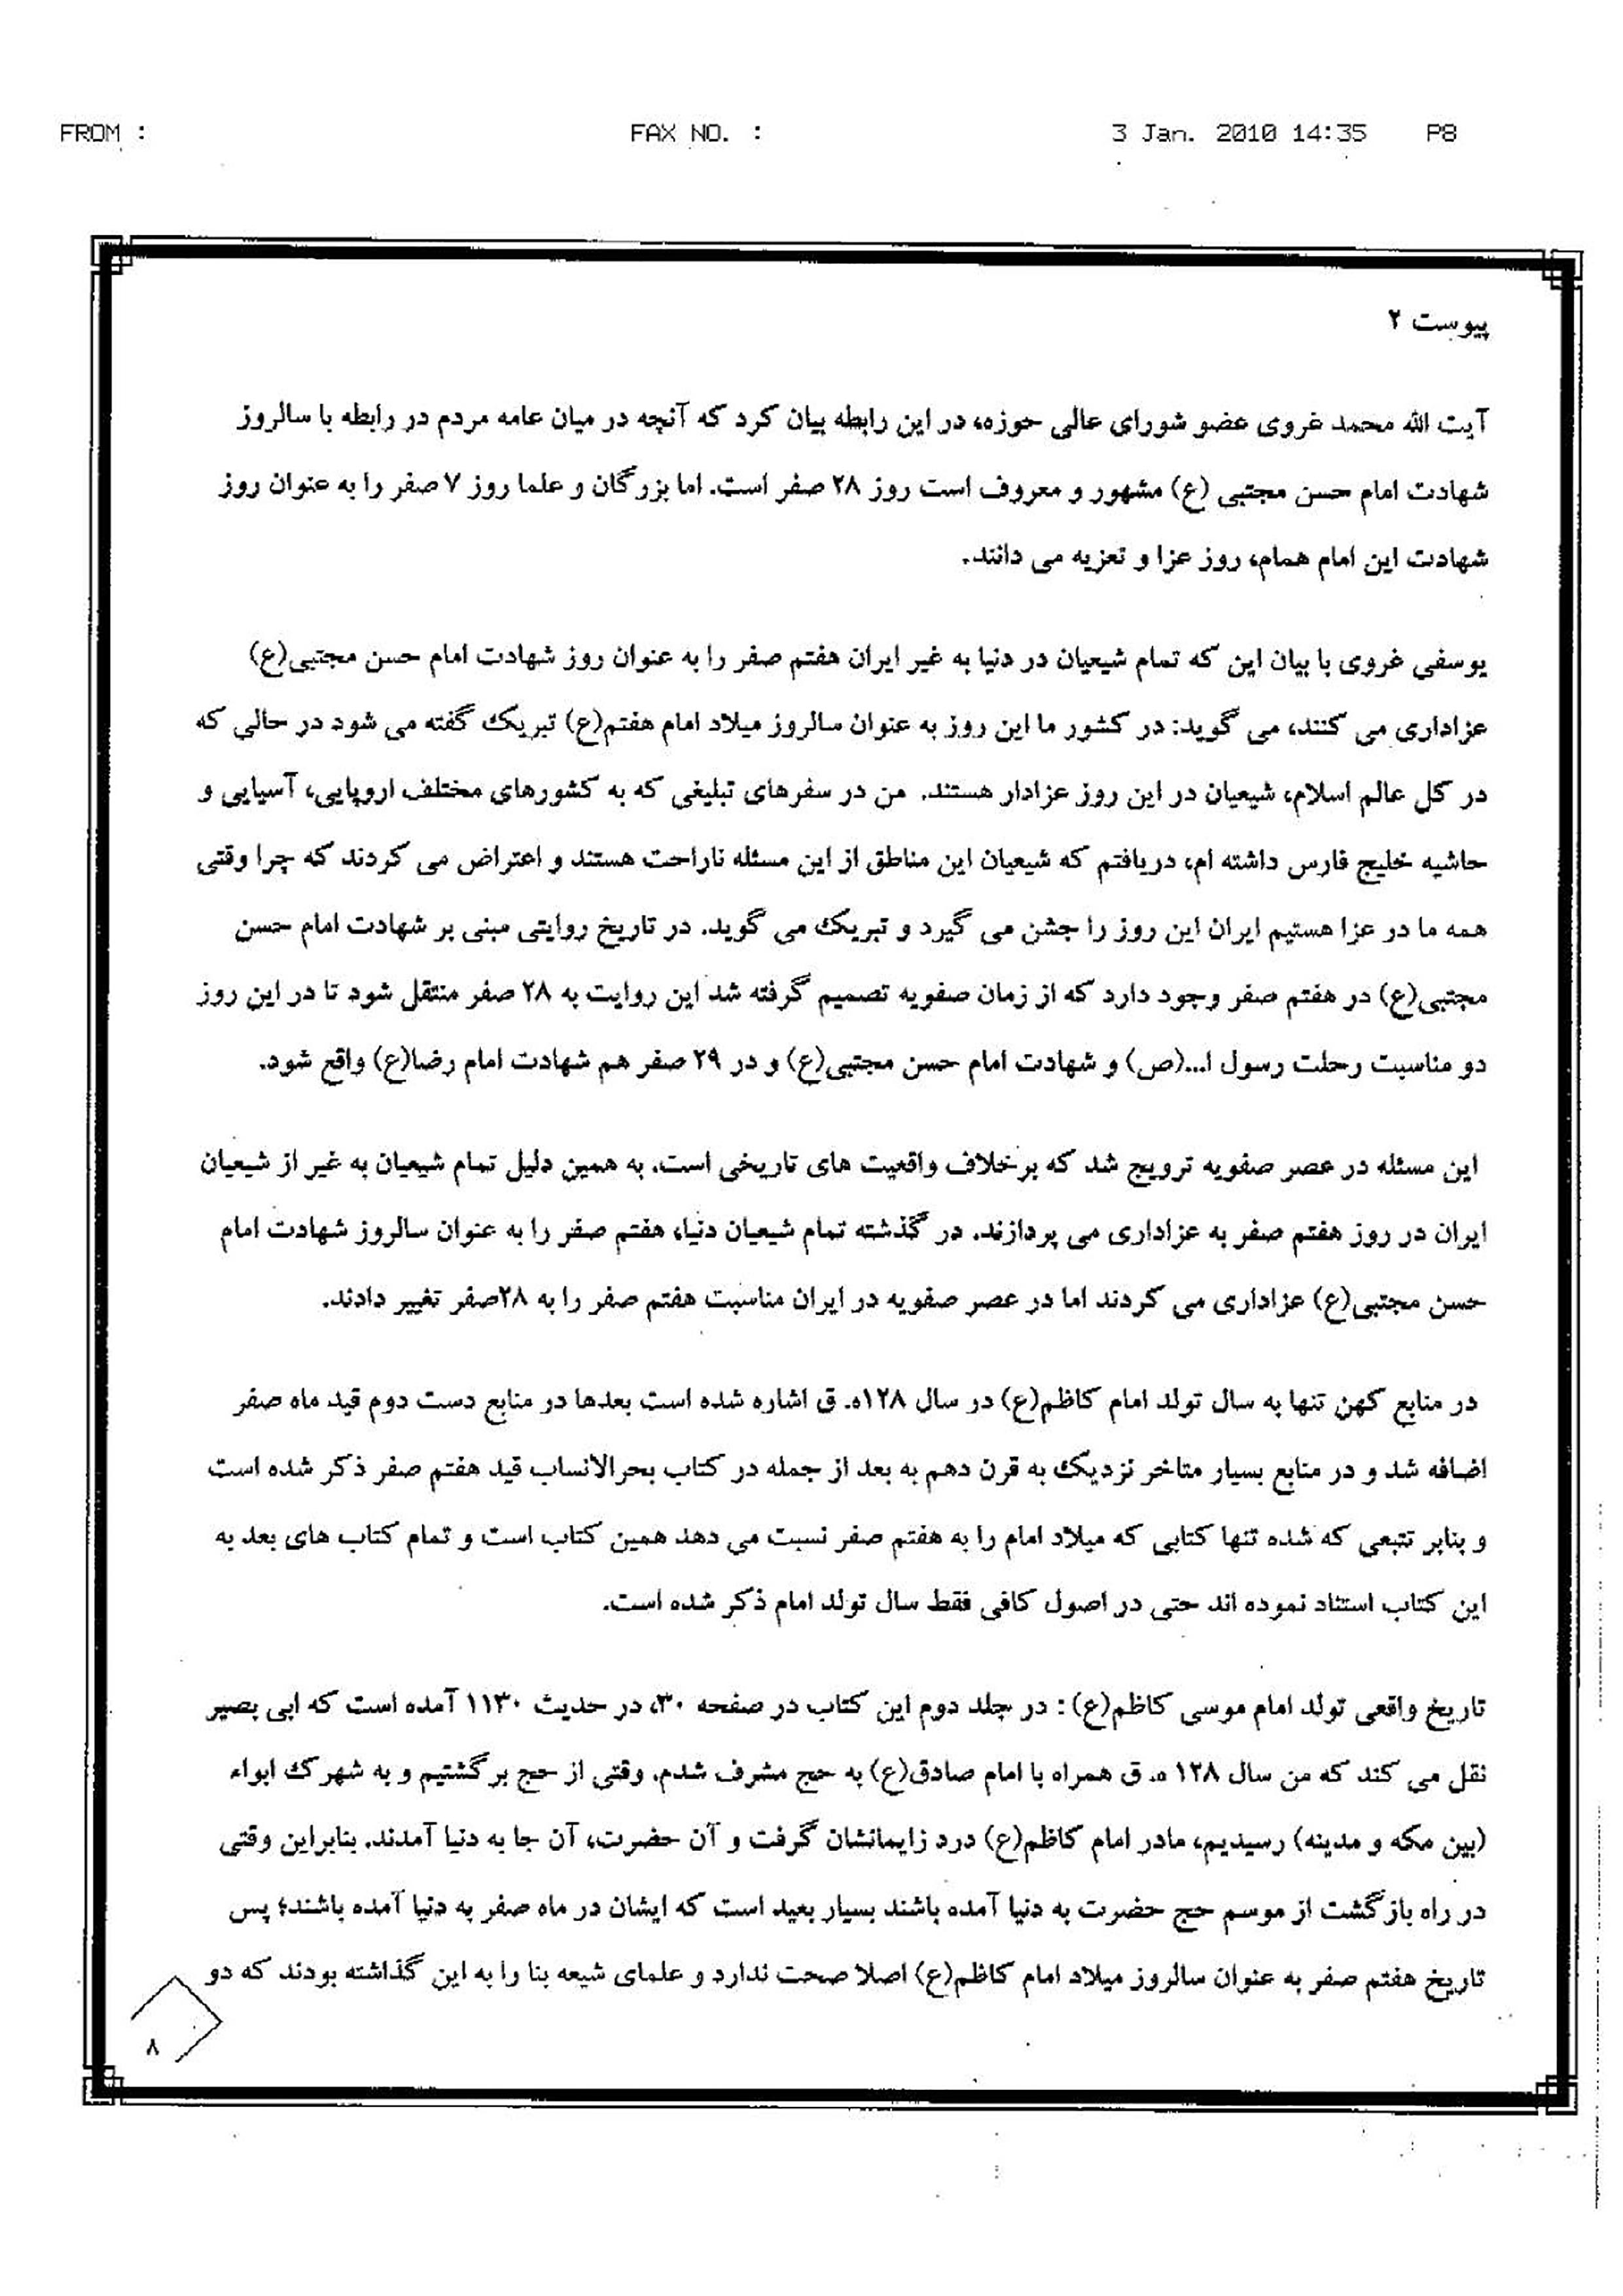 FROM :
FAX NO. :
3 Jan. 2010 14:35
P8
پیوست ۲
آیت الله محمد غروی عضو شورای عالی حوزه، در این رابطه بیان کرد که آنچه در میان عامه مردم در رابطه با سالروز
شهادت امام حسن مجتبی (ع) مشهور و معروف است روز ۲۸ صفر است. اما بزرگان و علما روز ۷ صفر را به عنوان روز
شهادت این امام همام، روز عزا و تعزیه می دانند.
یوسفی غروی با بیان این که تمام شیعیان در دنیا به غیر ایران هفتم صفر را به عنوان روز شهادت امام حسن مجتبی(ع)
عزاداری می کنند، می گوید: در کشور ما این روز به عنوان سالروز میلاد امام هفتم(ع) تبریک گفته می شود در حالی که
در کل عالم اسلام، شیعیان در این روز عزادار هستند. من در سفرهای تبلیغی که به کشورهای مختلف اروپایی، آسیایی و
حاشیه خلیج فارس داشته ام، دریافتم که شیعیان این مناطق از این مسئله ناراحت هستند و اعتراض می کردند که چرا وقتی
همه ما در عزا هستیم ایران این روز را جشن می گیرد و تبریک می گوید. در تاریخ روایتی مبنی بر شهادت امام حسن
مجتبی(ع) در هفتم صفر وجود دارد که از زمان صفویه تصمیم گرفته شد این روایت به ۲۸ صفر منتقل شود تا در این روز
دو مناسبت رحلت رسول ا...(ص) و شهادت امام حسن مجتبی(ع) و در ۲۹ صفر هم شهادت امام رضا(ع) واقع شود.
این مسئله در عصر صفویه ترویج شد که برخلاف واقعیت های تاریخی است. به همین دلیل تمام شیعیان به غیر از شیعیان
ایران در روز هفتم صفر به عزاداری می پردازند. در گذشته تمام شیعیان دنیا، هفتم صفر را به عنوان سالروز شهادت امام
حسن مجتبی(ع) عزاداری می کردند اما در عصر صفویه در ایران مناسبت هفتم صفر را به ۲۸صفر تغییر دادند.
در منابع کهن تنها به سال تولد امام کاظم(ع) در سال ۱۲۸ه. ق اشاره شده است بعدها در منابع دست دوم قید ماه صفر
اضافه شد و در منابع بسیار متاخر نزدیک به قرن دهم به بعد از جمله در کتاب بحرالانساب قید هفتم صفر ذکر شده است
و بنابر تتبعی که شده تنها کتابی که میلاد امام را به هفتم صفر نسبت می دهد همین کتاب است و تمام کتاب های بعد به
این کتاب استناد نموده اند حتی در اصول کافی فقط سال تولد امام ذکر شده است.
تاریخ واقعی تولد امام موسی کاظم(ع) : در جلد دوم این کتاب در صفحه ۳۰، در حدیث ۱۱۳۰ آمده است که ابی بصیر
نقل می کند که من سال ۱۲۸ ه. ق همراه با امام صادق(ع) به حج مشرف شدم. وقتی از حج برگشتیم و به شهرک ابواء
(بین مکه و مدینه) رسیدیم، مادر امام کاظم(ع) درد زایمانشان گرفت و آن حضرت، آن جا به دنیا آمدند. بنابراین وقتی
در راه بازگشت از موسم حج حضرت به دنیا آمده باشند بسیار بعید است که ایشان در ماه صفر به دنیا آمده باشند؛ پس
تاریخ هفتم صفر به عنوان سالروز میلاد امام کاظم(ع) اصلا صحت ندارد و علمای شیعه بنا را به این گذاشته بودند که دو
۸